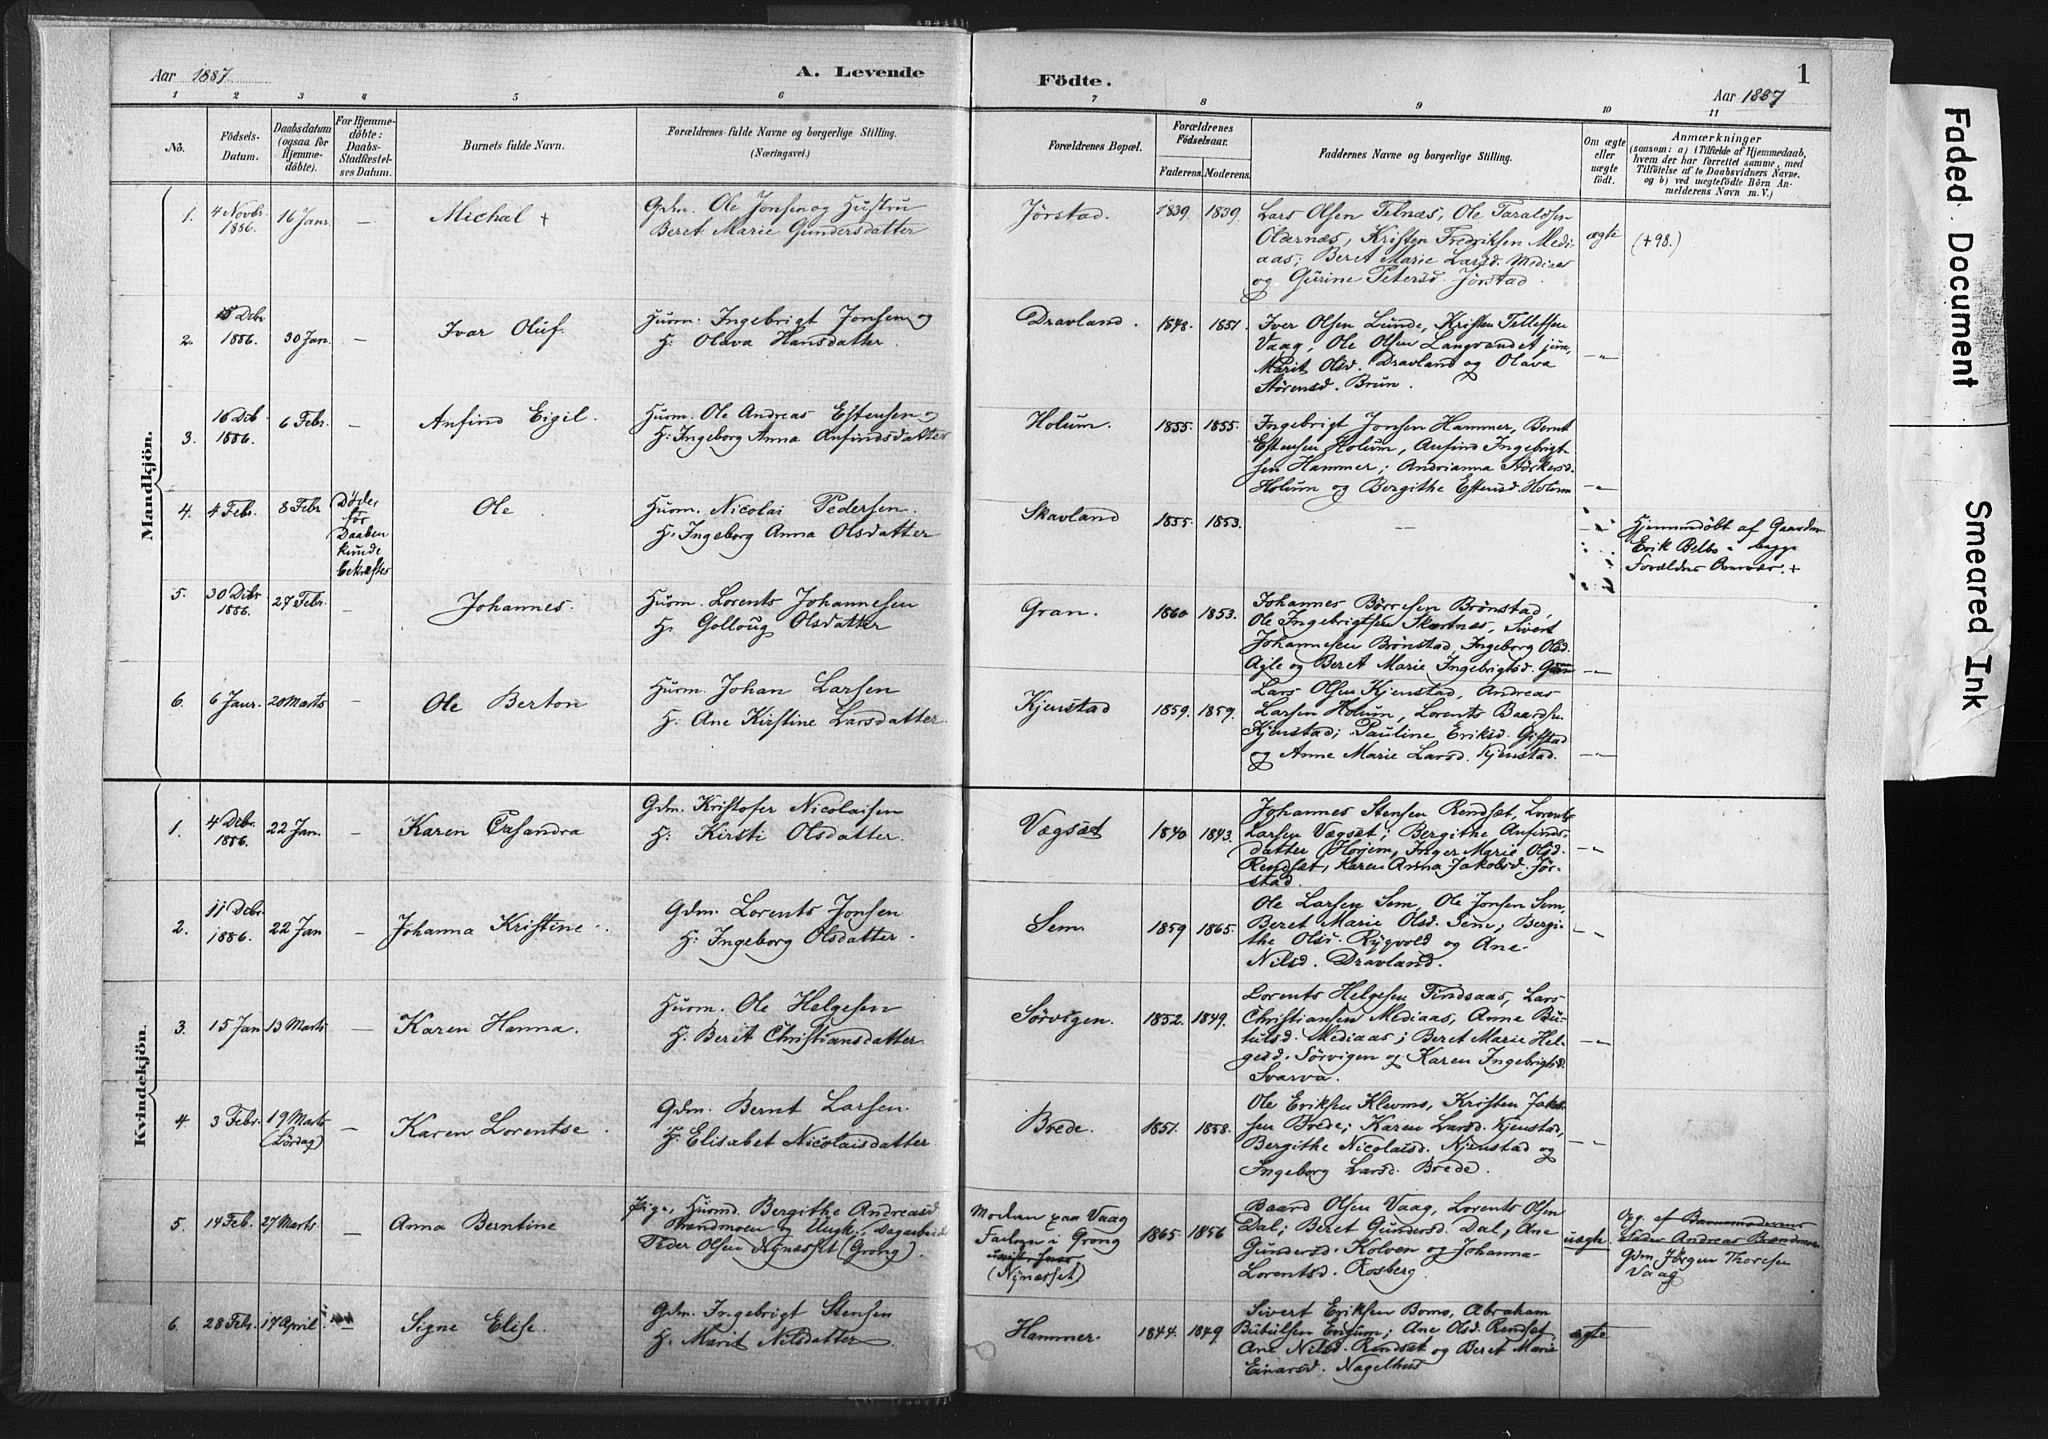 Aar 1887
A. Levende
Födte.
1
Aar 1887
1 2 3 4 5 6 7 8 9 10 11
No.
Födsels-
Datum.
Daabsdatum
(ogsaa for
Hjemme-
döbte).
For Hjemme-
döbte:
Daabs-
Stadfæstel-
ses Datum.
Barnets fulde Navn.
Forældrenes fulde Navne og borgerlige Stilling.
(Næringsvei.)
Forældrenes Bopæl.
Forældrenes
Födselsaar.
Faderens. Moderens.
Faddernes Navne og borgerlige Stilling.
Om ægte
eller
uægte
födt.
Anmærkninger
(saasom: a) i Tilfælde af Hjemmedaab,
hvem der har forrettet samme, med
Tilföielse af to Daabsvidners Navne.
og b) ved uægtefödte Börn An-
melderens Navn m. V.)
Mandkjön.
1.
4 Novbr
1886.
16 Janr.
—
Michal +
Gdm. Ole Jonsen og Hustru
Beret Marie Gundersdatter
Jörstad.
1839. 1839.
Lars Olsen Telnæs, Ole Taraldsen
Oldernæs, Kristen Fredriksen Medi-
aas; Beret Marie Larsd. Mediaas
og Gurine Petersd. Jörstad.
ægte
(+98.)
2.
Debr
1886.
30 Jan.
—
Ivar Oluf.
Husm. Ingebrigt Jonsen og
H: Olava Hansdatter.
Dravland.
1848. 1851.
Iver Olsen Lunde, Kristen Tellefsen
Vaag, Ole Olsen Langvandet jun.,
Marit Olsd. Dravland og Olava
Störensd. Brun.
—"—
3.
16 Deb
1886.
6 Febr.
—
Anfind Eigil.
Husm. Ole Andreas Estensen og
H: Ingeborg Anna Anfindsdatter
Holum.
1855. 1855.
Ingebrigt Jonsen Hammer, Bernt
Estensen Holum, Anfind Ingebrigt-
sen Hammer; Andrianna Störkersd.
Holum og Bergithe Estensd. Holum
—"—
4.
4 Febr.
8 Febr
Döde
før
Daaben
kunde
bekræftes
Ole
Husm. Nicolai Pedersen.
H. Ingeborg Anna Olsdatter
Skavland
1855. 1853.
—
Hjemmedöbt af Gaardm.
Erik Belbo i begge
Forældres Overvær. +
5.
30 Debr
1886.
27 Febr.
—
Johannes.
Husm. Lorents Johannesen
H. Golloug Olsdatter
Gran.
1860 1853.
Johannes Börresen Brönstad,
Ole Ingebrigtsen Skartnæs, Sivert
Johannesen Brönstad, Ingeborg Olsd.
Agle og Beret Marie Ingebrigtsd. Gran
—"—
6.
6 Janr.
20 Marts
—
Ole Berton
Husm. Johan Larsen
H: Ane Kirstine Larsdatter
Kjenstad
1859. 1859.
Lars Olsen Kjenstad, Andreas
Larsen Holum, Lorents Baardsen
Kjenstad; Pauline Eriksd. Gifstad
og Anne Marie Larsd. Kjenstad.
—"—
Kvindekjön.
1.
4 Debr.
1886.
22 Jan.
—
Karen Casandra
Gdm. Kristofer Nicolaisen
H: Kirsti Olsdatter.
Vægsæt
1840 1843.
Johannes Stensen Rendsæt, Lorents
Larsen Vægsæt; Bergithe Anfinds-
datter Horjem, Inger Marie Olsd.
Rendsæt, Karen Anna Jakobsd. Jör-
stad.
—"—
2.
11 Debr.
1886.
22 Jan
—
Johanna Kristine.
Gdm. Lorents Jonsen
H: Ingeborg Olsdatter.
Sem.
1859 1865.
Ole Larsen Sem, Ole Jonsen Sem,
Beret Marie Olsd. Sem; Bergi-
the Olsd. Rygvold og Ane
Nilsd. Dravland.
—"—
3.
15 Jan
13 Marts
—
Karen Hanna.
Husm. Ole Helgesen
H. Berit Christiansdatter
Sörvigen.
1852. 1849.
Lorents Helgesen Findsaas, Lars
Christiansen Mediaas, Anne Bu-
tulsd. Mediaas; Beret Marie Hel-
gesd. Sörvigen og Karen Ingebrigtsd.
Svarva.
—"—
4
3 Febr.
19 Marts
(Lördag)
—
Karen Lorentse.
Gdm. Bernt Larsen.
H: Elisabet Nicolaisdatter
Brede.
1851. 1858.
Ole Eriksen Klevmo, Kristen Jakob-
sen Brede; Karen Larsd. Kjenstad,
Bergithe Nicolaisd. Kjenstad og
Ingeborg Larsd. Brede.
—"—
5.
14 Feb.
27 Marts
—
Anna Berntine
Pige, Husmd. Bergithe Andreasd
Brandmoen og Ungk., Dagarbeider
Peder Olsen Nynæsset (Grong).
Moderen paa Vaag
Faderen i Grong
(Nynæsset)
1865. 1856
Baard Olsen Vaag, Lorents Olsen
Dal; Beret Gundersd. Dal, Ane
Gundersd. Kolven og Johanna
Lorentsd. Rosberg.
uægte.
Opg. af Barnemoderens
Fader Andreas Brandmoen
Gdm Jörgen Thoresen
Vaag
6.
28 Febr.
17 April
—
Signe Elise.
Gdm. Ingebrigt Stensen
H. Marit Nilsdatter.
Hammer.
1844. 1849
Sivert Eriksen Bomo, Abraham
Butulsen; Ane Olsd. Rendsæt,
Ane Nilsd. Rendsæt og Beret Marie
Einarsd. Nagelhus
ægte
Faded Document
Smeared Ink